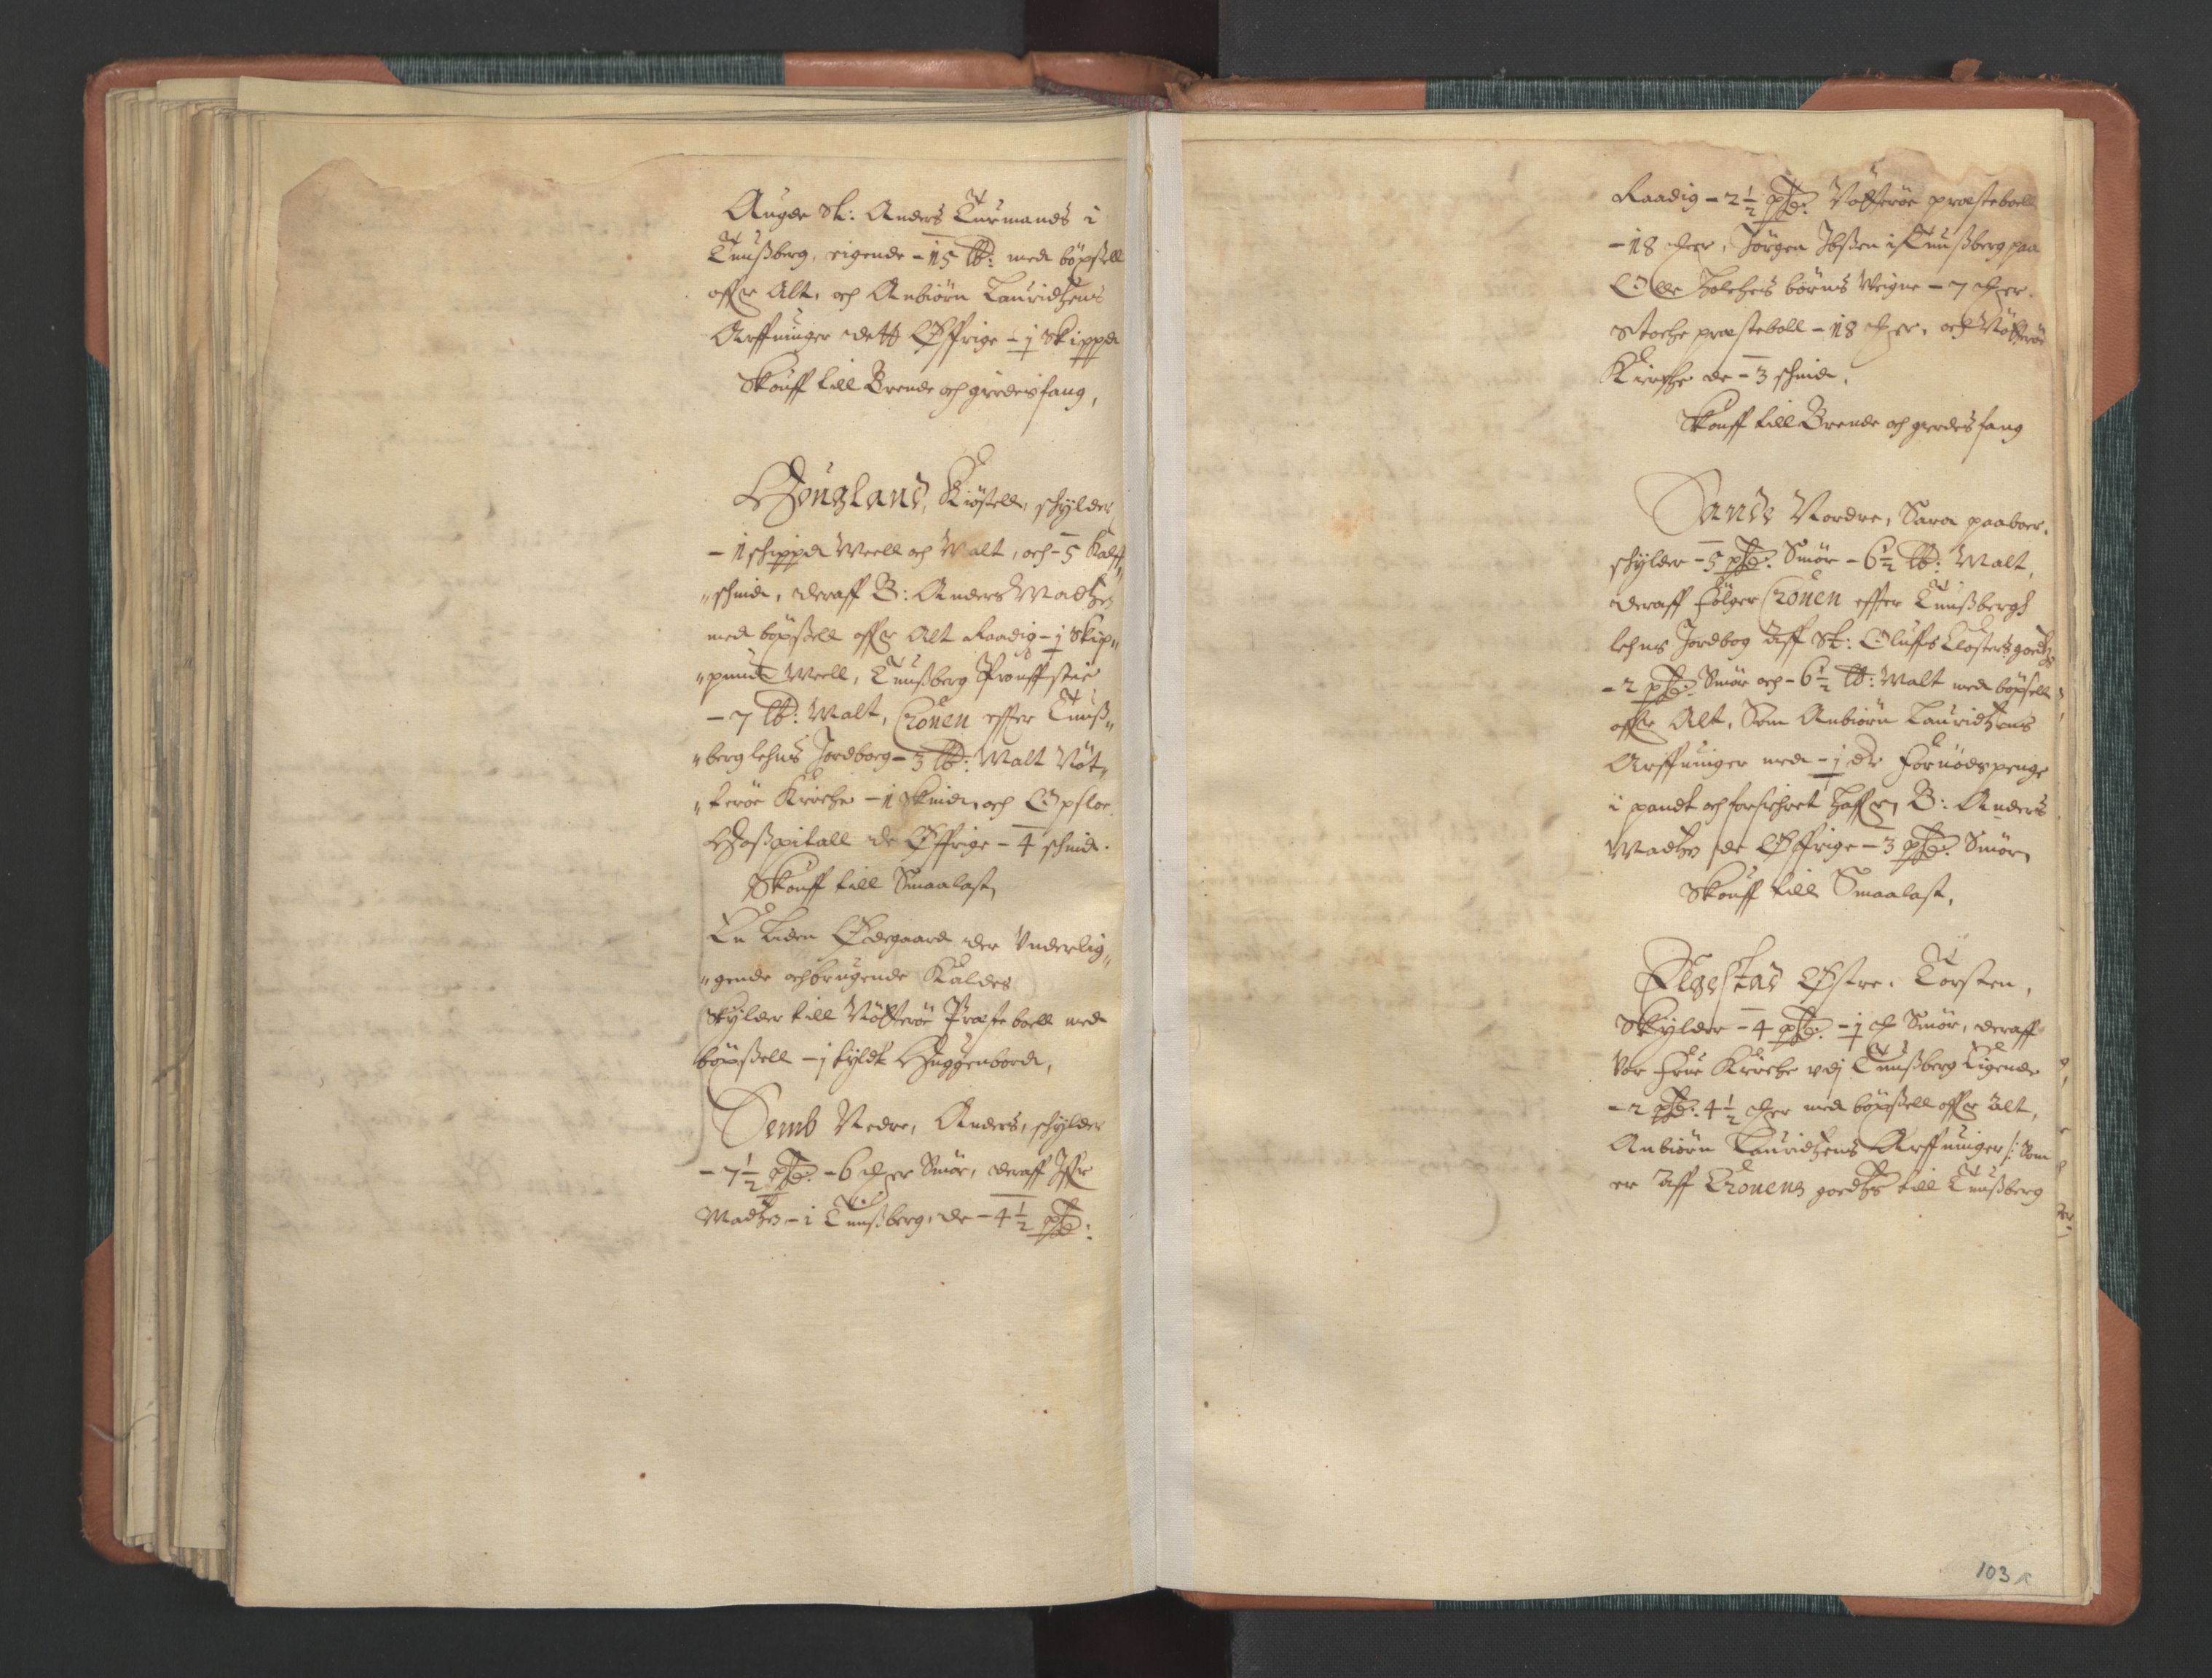 Auger Sl: Anders Turmands i
Tunßberg, eigende - 15 lb: med böxsell
offr Alt, och Anbiörn Lauridtzens
Arffninger dett Øffrige - 1 Skippd
Skouff till Brende och gierdeisfang,
Hougland, Kiöstell, schylder
- 1 schippd Meell och Malt, och - 5 Kalff„
„schind, deraff B: Anders Madtzen
med böxsell offr Alt Raadig - 1 Skip„
„pund Meell, Tunßberg Prouffstie
- 7 lb: Malt, Cronen effter Tunß„
„berg lehns Jordboeg - 3 lb: Malt Nöt„
„teröe Kirche - 1 Skind, och Opsloe
Hoßpitall de Øffrige - 4 schind.
Skouff till Smaalast,
En liden Ødegaard der Vnderlig„
„gende och brugende Kaldes
Skylder till Nötteröe Præsteboell med
böxsell - 1 tyldt Huggenbord,
Semb Nedre, Anders, schylder
- 7 1/2 pd: - 6 mker Smör, deraff Iffr
Madtzen - i Tunßberg, de - 4 1/2 pd:
Raadig - 2 1/2 pd: Nötteröe præsteboell
- 18 mker, Jörgen Ibßen i Tunßberg paa
Olle Holchis börns Weigne - 7 mker.
Stoche præsteboll - 18 mker, och Nötteröe
Kirche de - 3 schind,
Skouff till Brende och gierdesfang
Sande Nordre, Sara paaboer,
schylder - 5 pd: Smör - 6 1/2 lb: Malt,
deraff Fölger Cronen effter Tunßbergs
lehns Jordbog aff St: Oluffs Closters goedtz
- 2 pd: Smör och - 6 1/2 lb: Malt med böxsell
offr Alt, Som Anbiörn Lauridtzens
Arffninger med - 1 dr Förnödspenge
i pandt och forsichret haffr, B: Anders
Madtzen de Øffrige - 3 pd: Smör,
Skouff till Smaalast,
Elgestad Østre, Torsten,
Skylder - 4 pd: - 1 mk Smör, deraff
Vor Frue Kirche vdj Tunßberg Eigende
- 2 pd: 4 1/2 mker med böxsell offr alt,
Anbiörn Lauridtzens Arffninger /: Som
er aff Cronens goedtz till Tunßberg
103